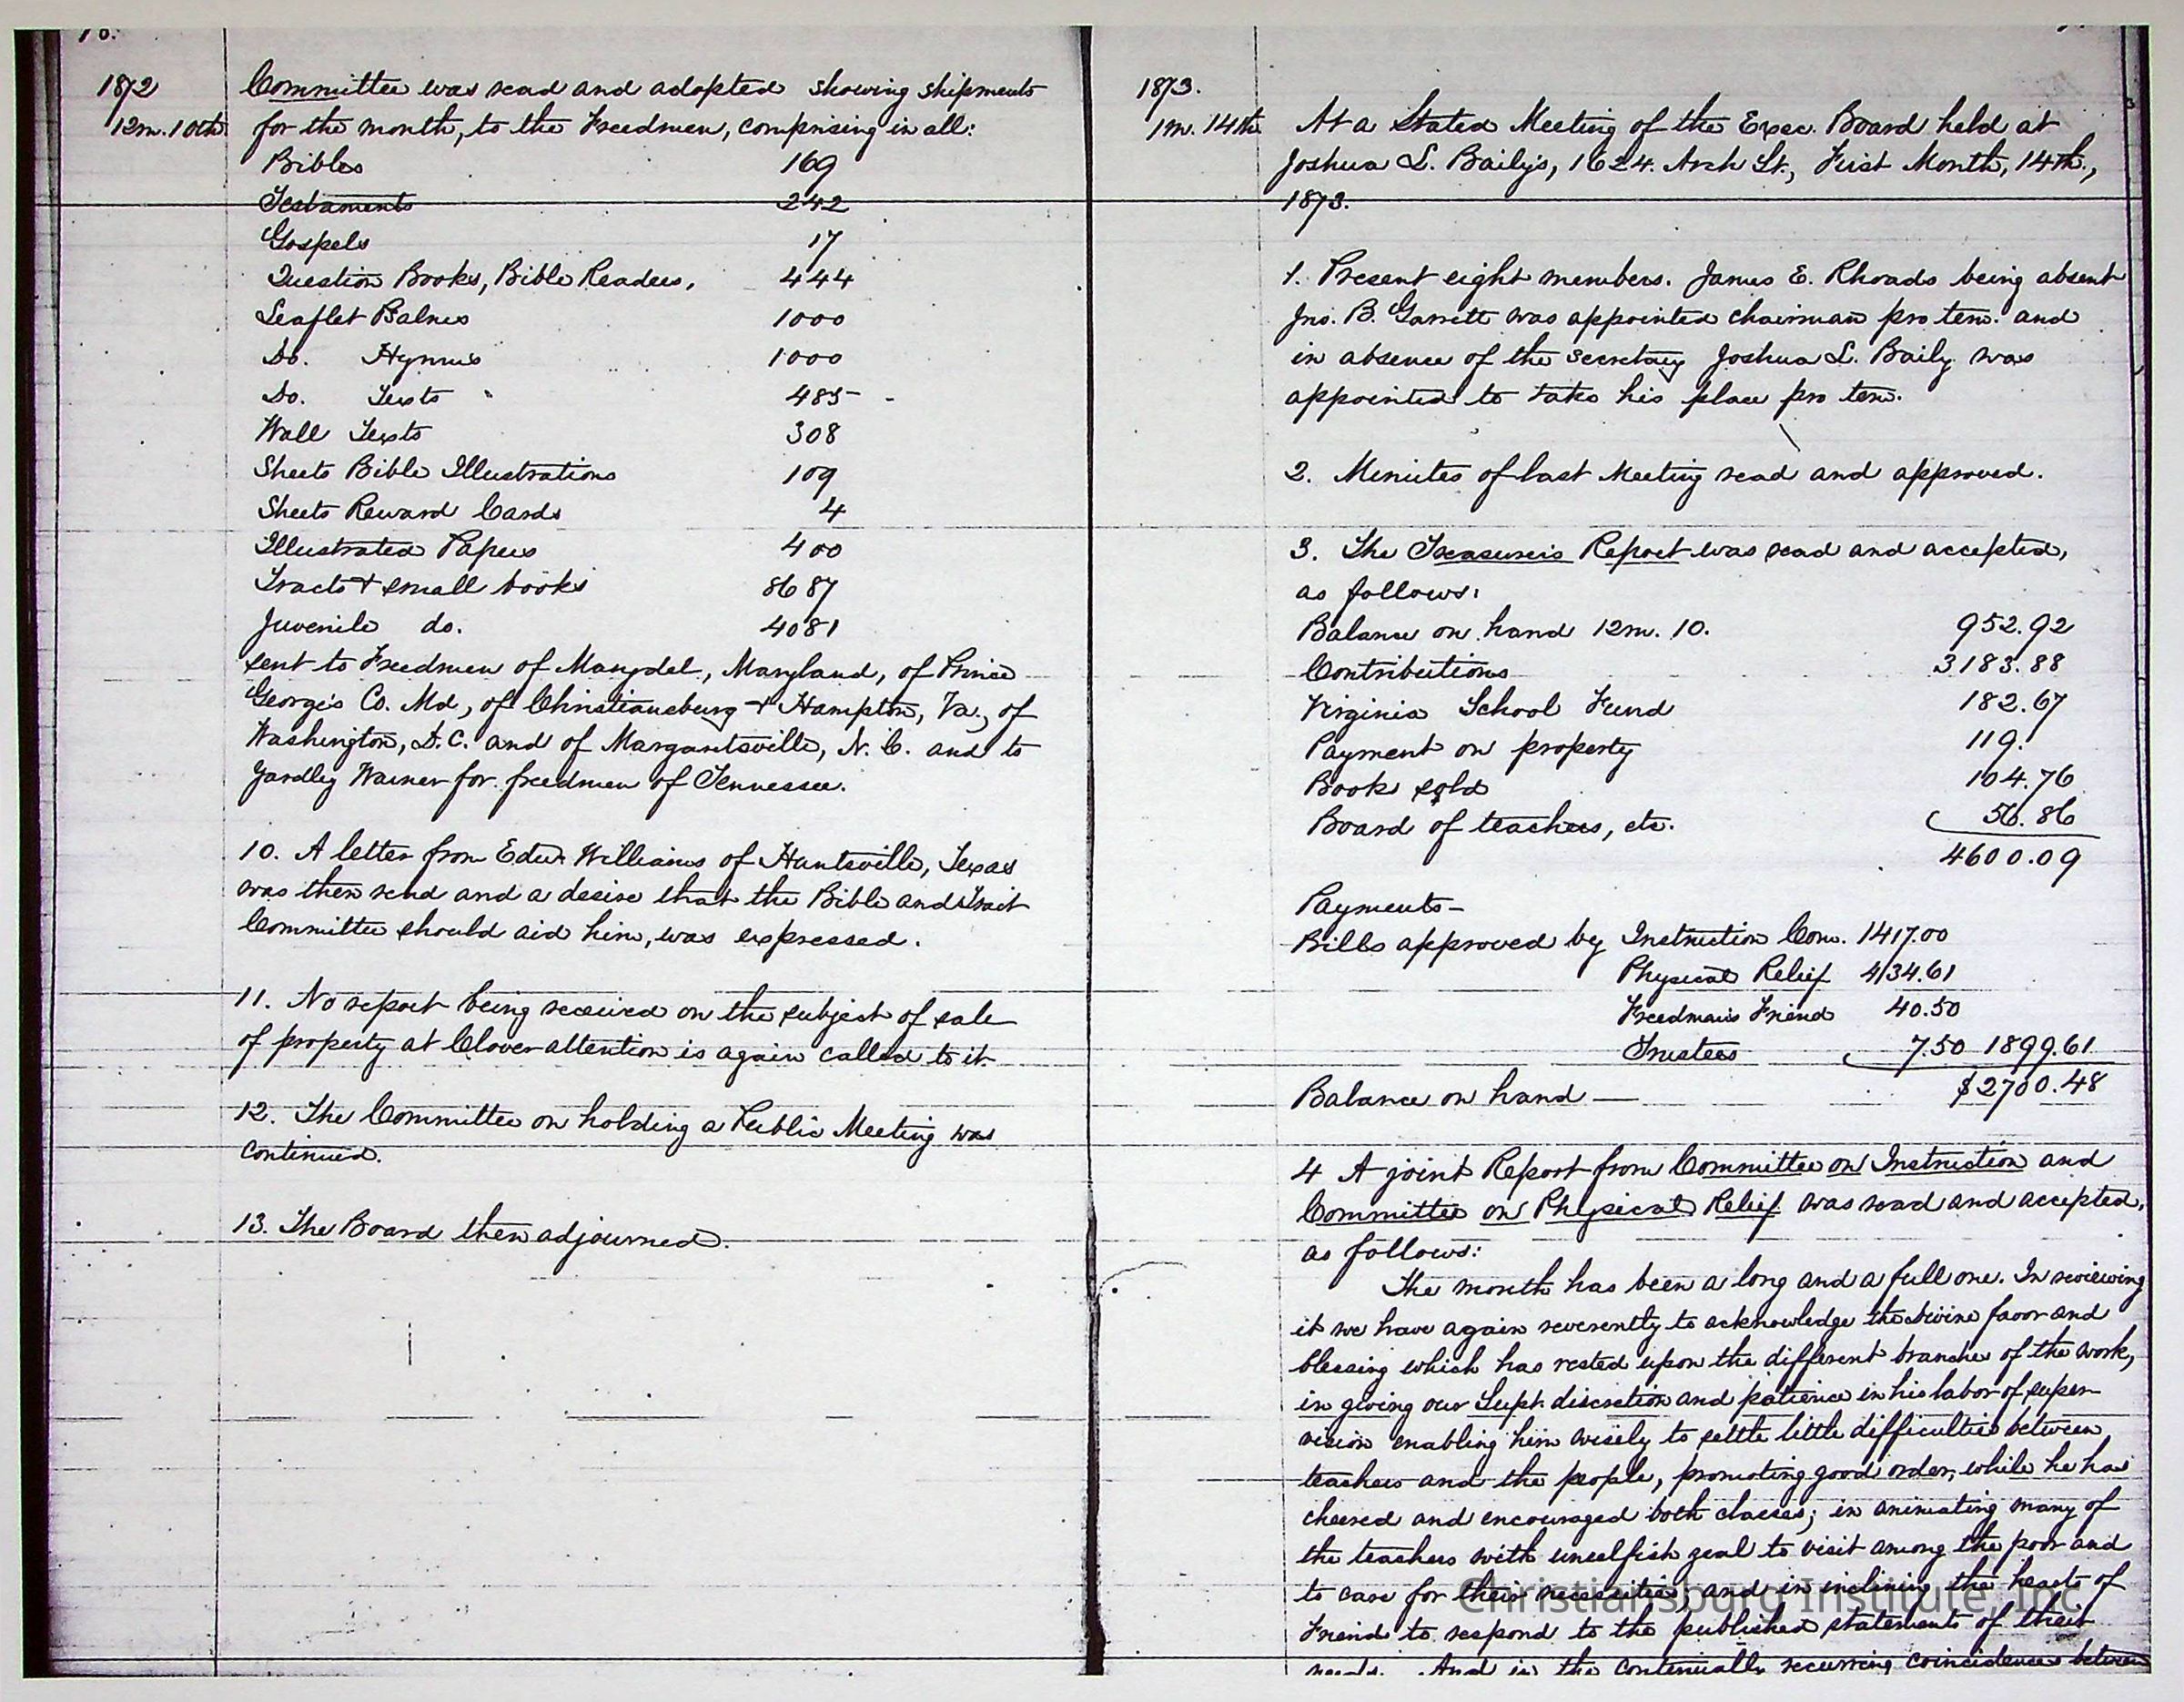 1872
12m. 10th
Committee was read and adopted showing shipments
for the month, to the Freedmen, comprising in all:
Bibles 169
Testaments 242
Gospels 17
Question Books, Bible Readers, 444
Leaflet Psalms 1000
Do. Hymns 1000
Do. Texts 485
Wall Texts 308
Sheets Bible Illustrations 109
Sheets Reward Cards 4
Illustrated Papers 400
Tracts & small books 8687
Juvenile do. 4081
sent to Freedmen of Marydel, Maryland, of Prince
George's Co. Md, of Christiansburg & Hampton, Va., of
Washington, D.C. and of Margarettsville, N. C. and to
Yardley Warner for freedmen of Tennessee.
10. A letter from Edw Williams of Huntsville, Texas
was then read and a desire that the Bible and Tract
Committee should aid him, was expressed.
11. No report being received on the subject of sale
of property at Clover attention is again called to it.
12. The Committee on holding a Public Meeting was
continued.
13. The Board then adjourned.
1873.
1m. 14th
At a Stated Meeting of the Exec. Board held at
Joshua L. Baily's, 1624. Arch St., First Month, 14th.,
1873.
1. Present eight members. James E. Rhoads being absent
Jno. B. Garrett was appointed chairman pro tem. and
in absence of the secretary Joshua L. Baily was
appointed to take his place pro tem.
2. Minutes of last Meeting read and approved.
3. The Treasurer's Report was read and accepted,
as follows:
Balance on hand 12m. 10. 952.92
Contributions 3183.88
Virginia School Fund 182.67
Payment on property 119.
Books sold 104.76
Board of teachers, etc. 56.86
4600.09
Payments—
Bills approved by Instruction Com. 1417.00
Physical Relief 434.61
Freedman's Friend 40.50
Trustees 7.50 1899.61
Balance on hand — $2700.48
4 A joint Report from Committee on Instruction and
Committee on Physical Relief was read and accepted,
as follows:
The month has been a long and a full one. In reviewing
it we have again reverently to acknowledge the Divine favor and
blessing which has rested upon the different branches of the work,
in giving our Supt. discretion and patience in his labor of super-
vision enabling him wisely to settle little difficulties between
teachers and the people, promoting good order, while he has
cheered and encouraged both classes; in animating many of
the teachers with unselfish zeal to visit among the poor and
to care for their necessities, and in inclining the hearts of
Friends to respond to the published statements of their
needs. And in the continually recurring coincidences between
Christiansburg Institute, Inc